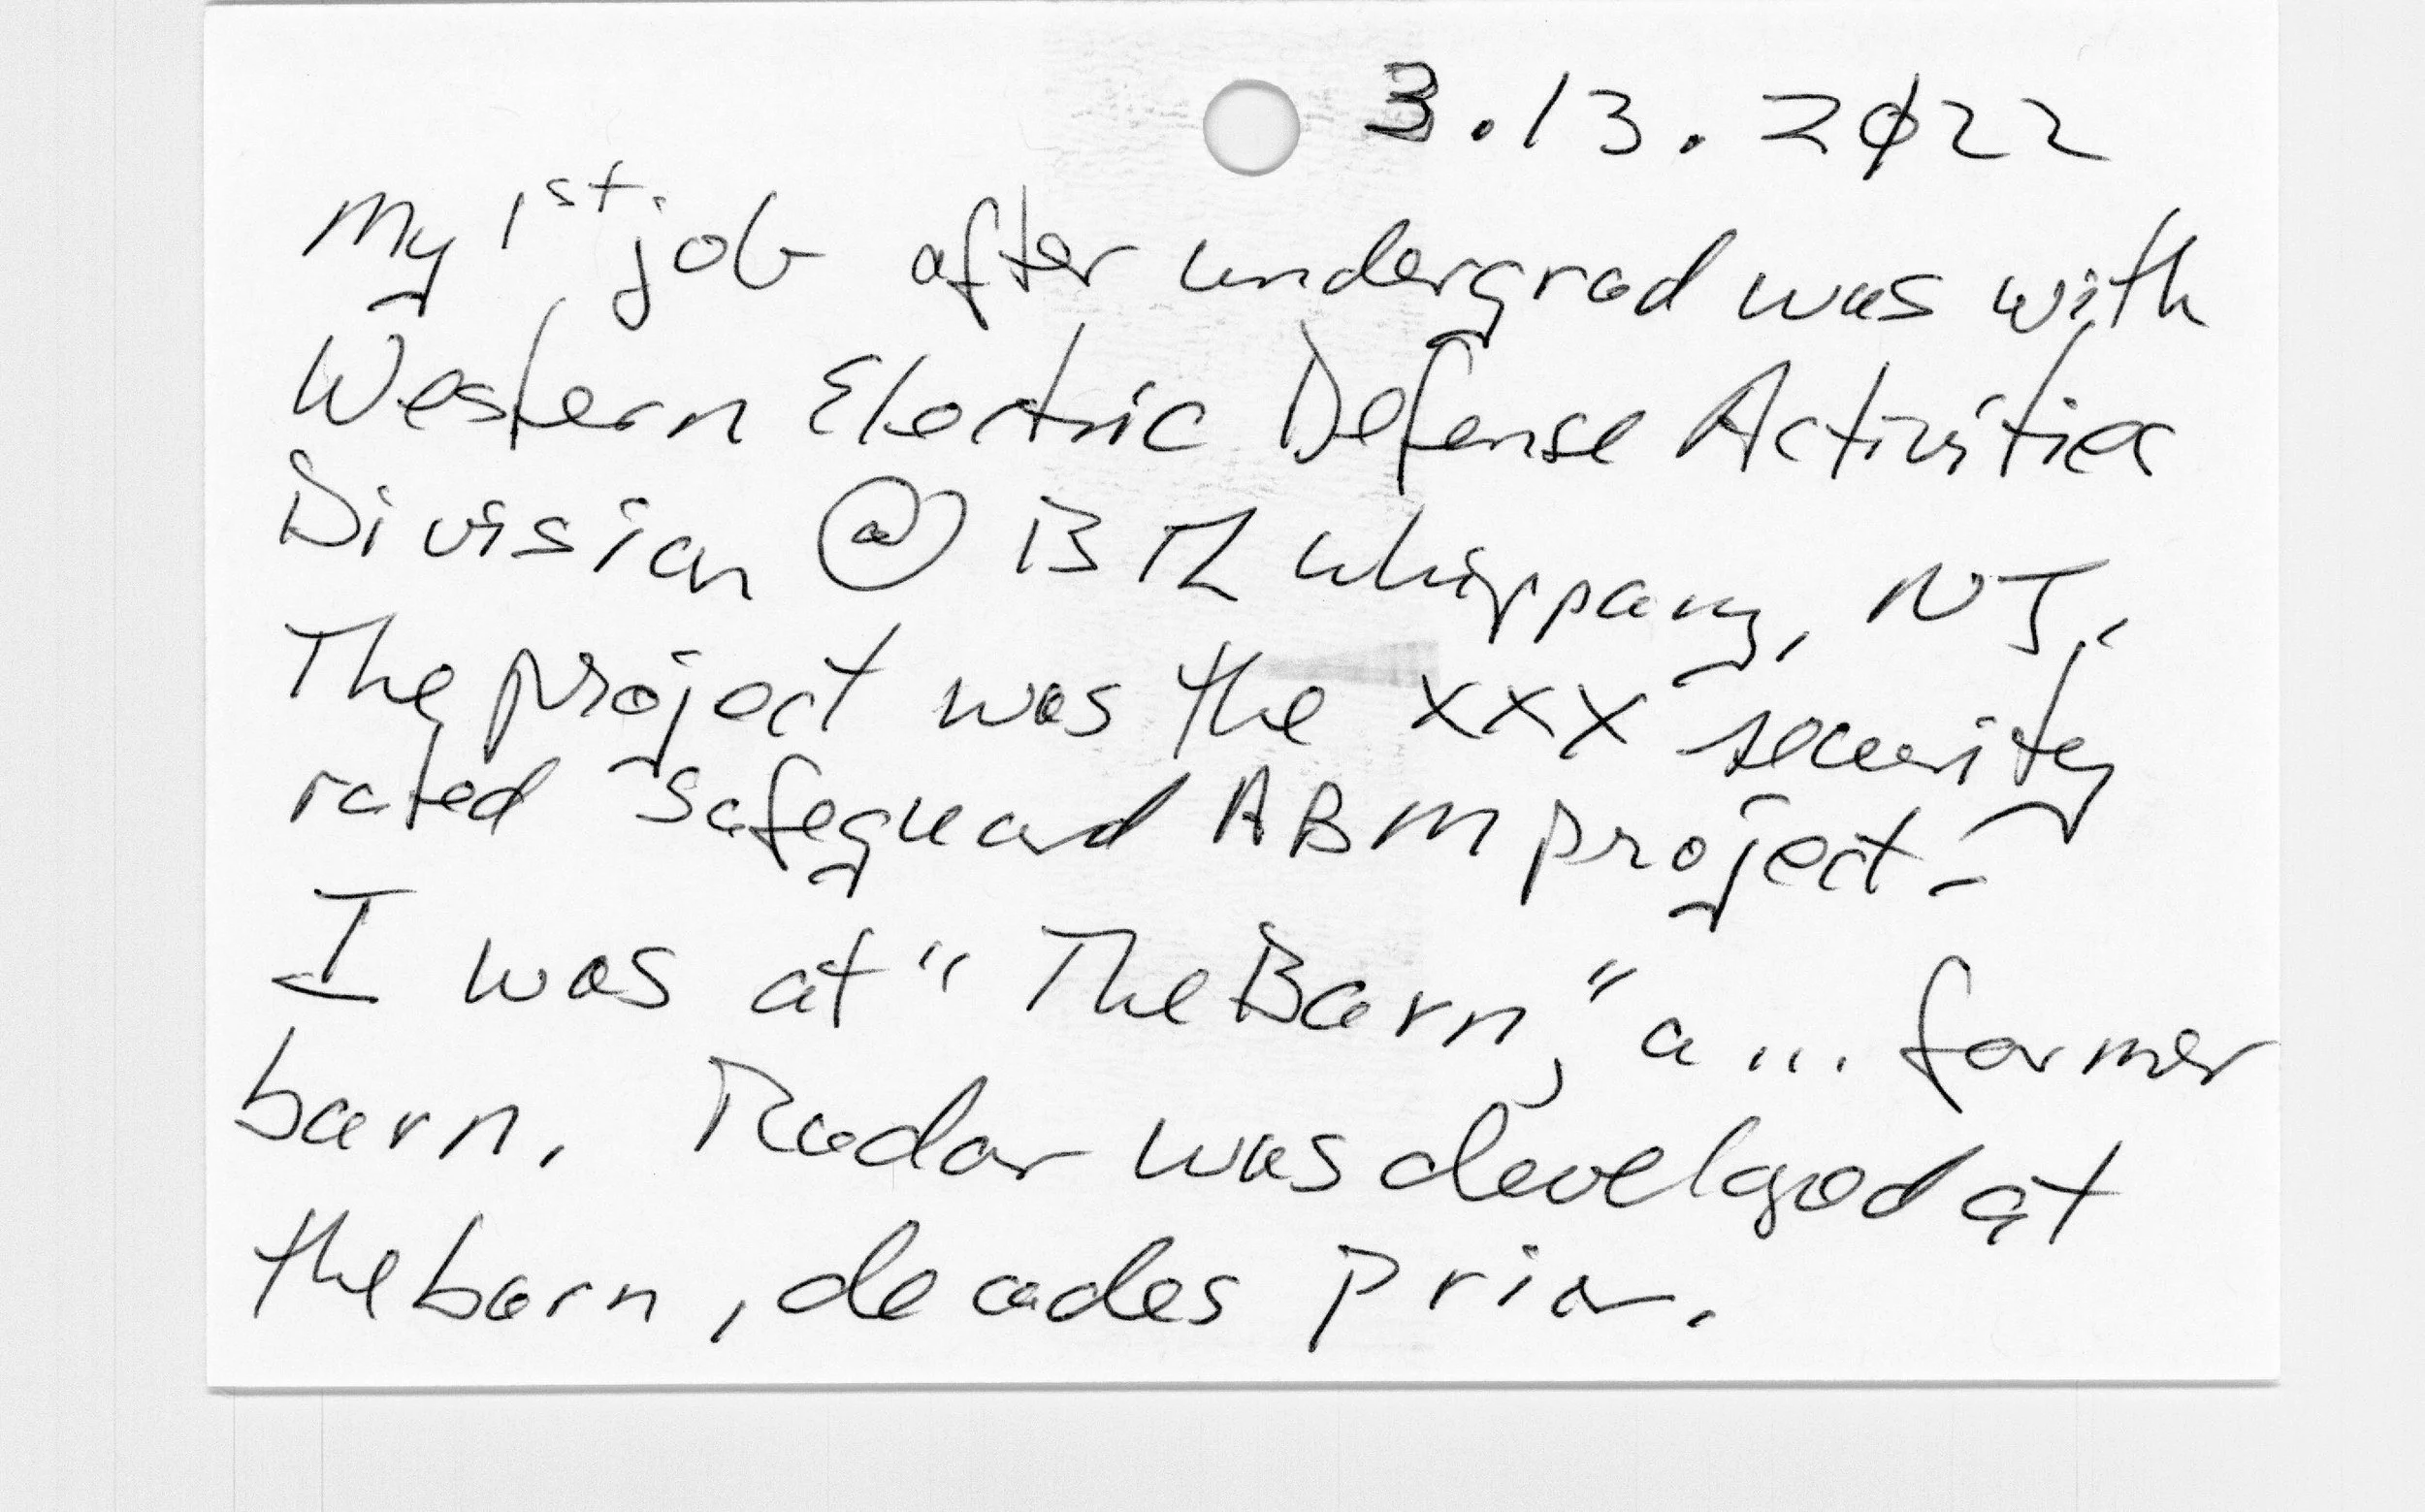 3.13.2022
My 1st job after undergrad was with
Western Electric Defense Activities
Division @ BTL Whippany, NJ.
The project was the xxx security
rated Safeguard ABM project -
I was at "The Barn," a ... former
barn. Radar was developed at
the barn, decades prior.